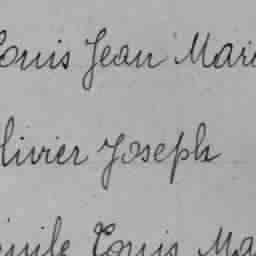 Louis Jean Mari
Olivier Joseph
Emile Louis Ma